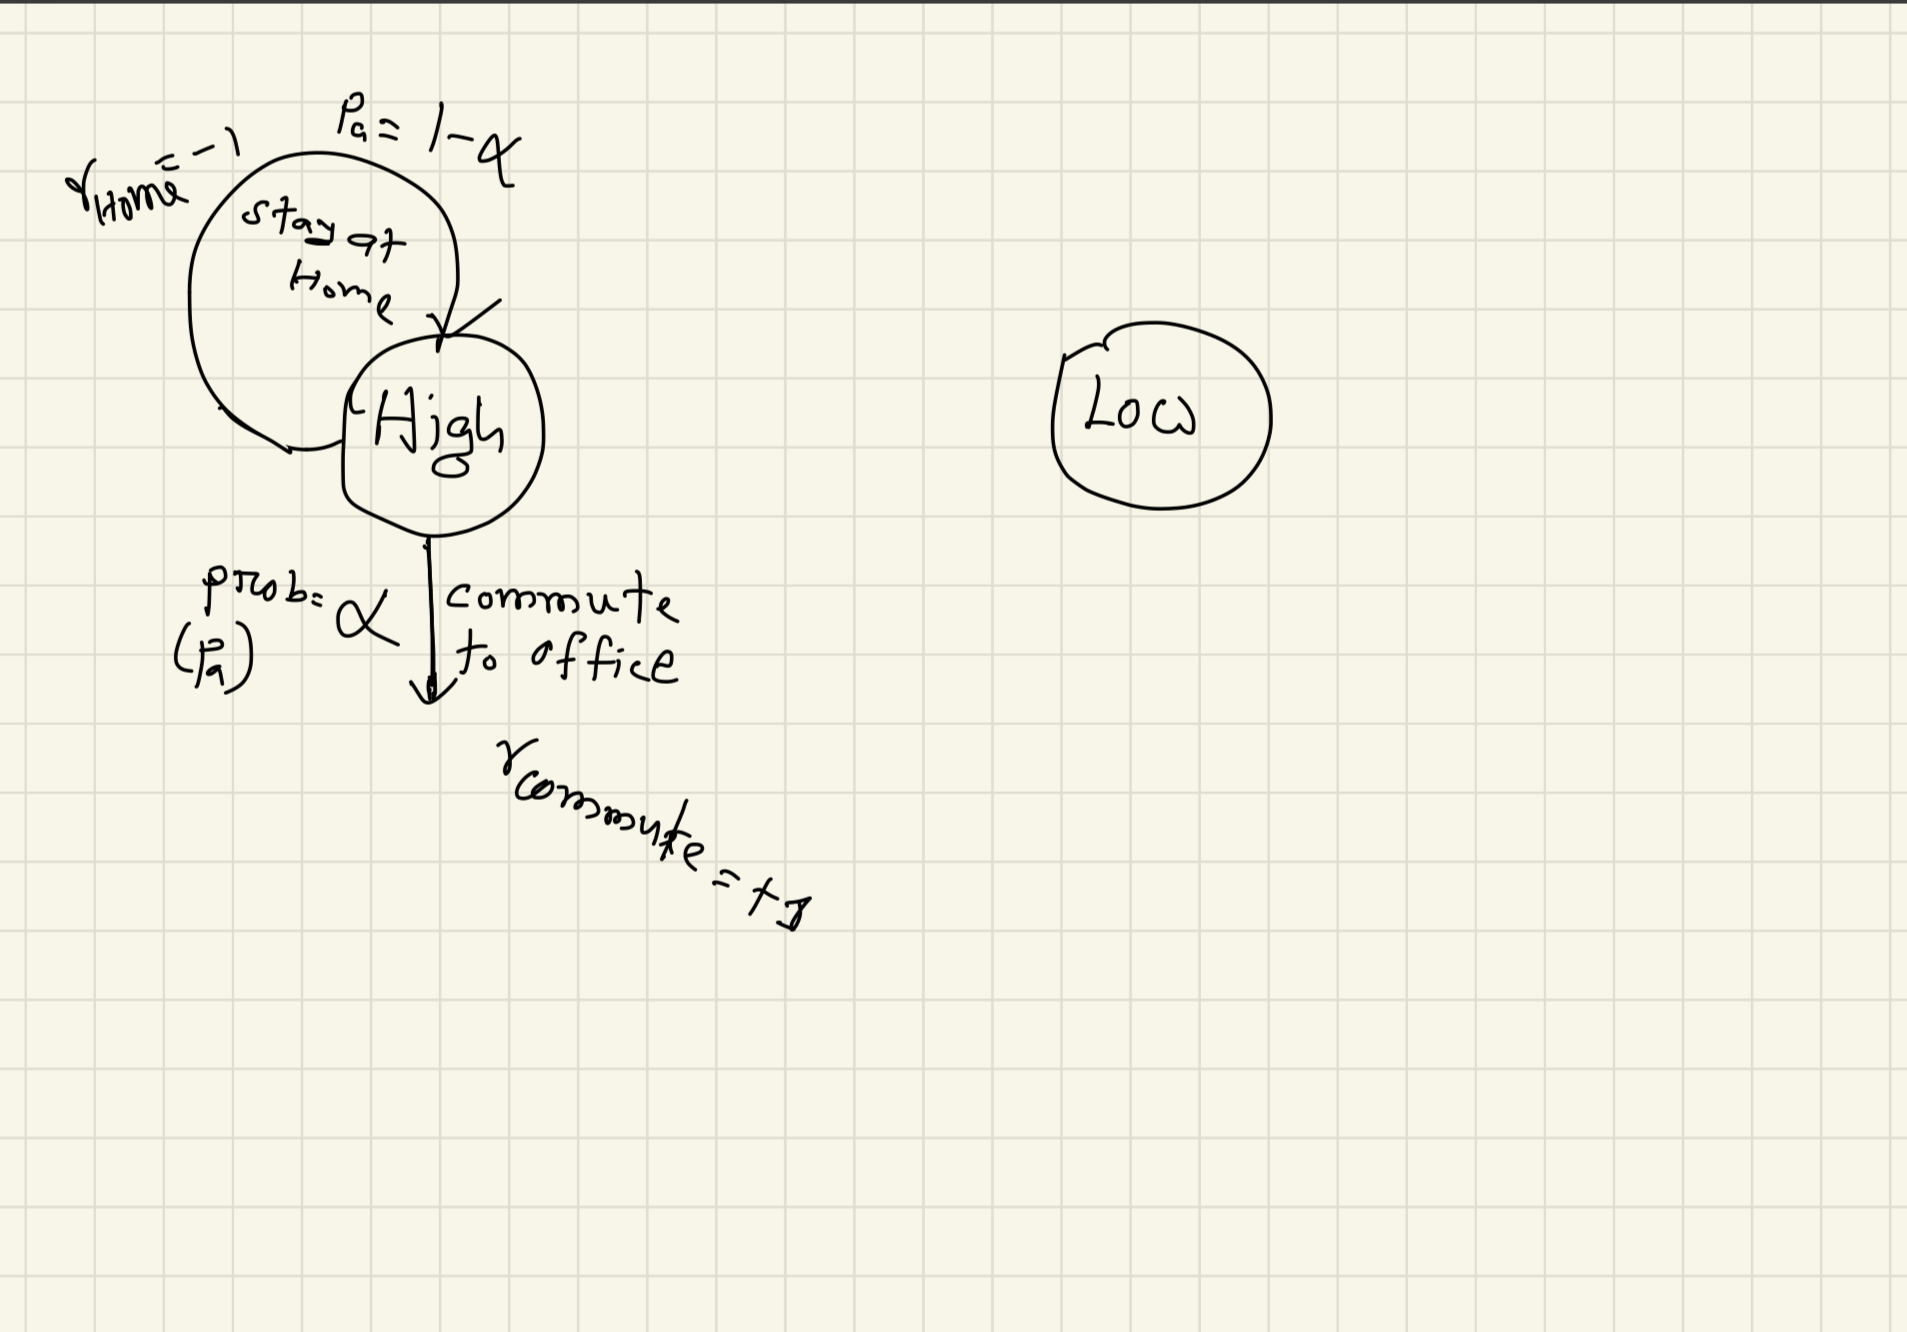 Pa = 1-α
rHome = -1
stay at
Home
High
Low
prob. = α
(Pa)
commute
to office
rcommute = +1